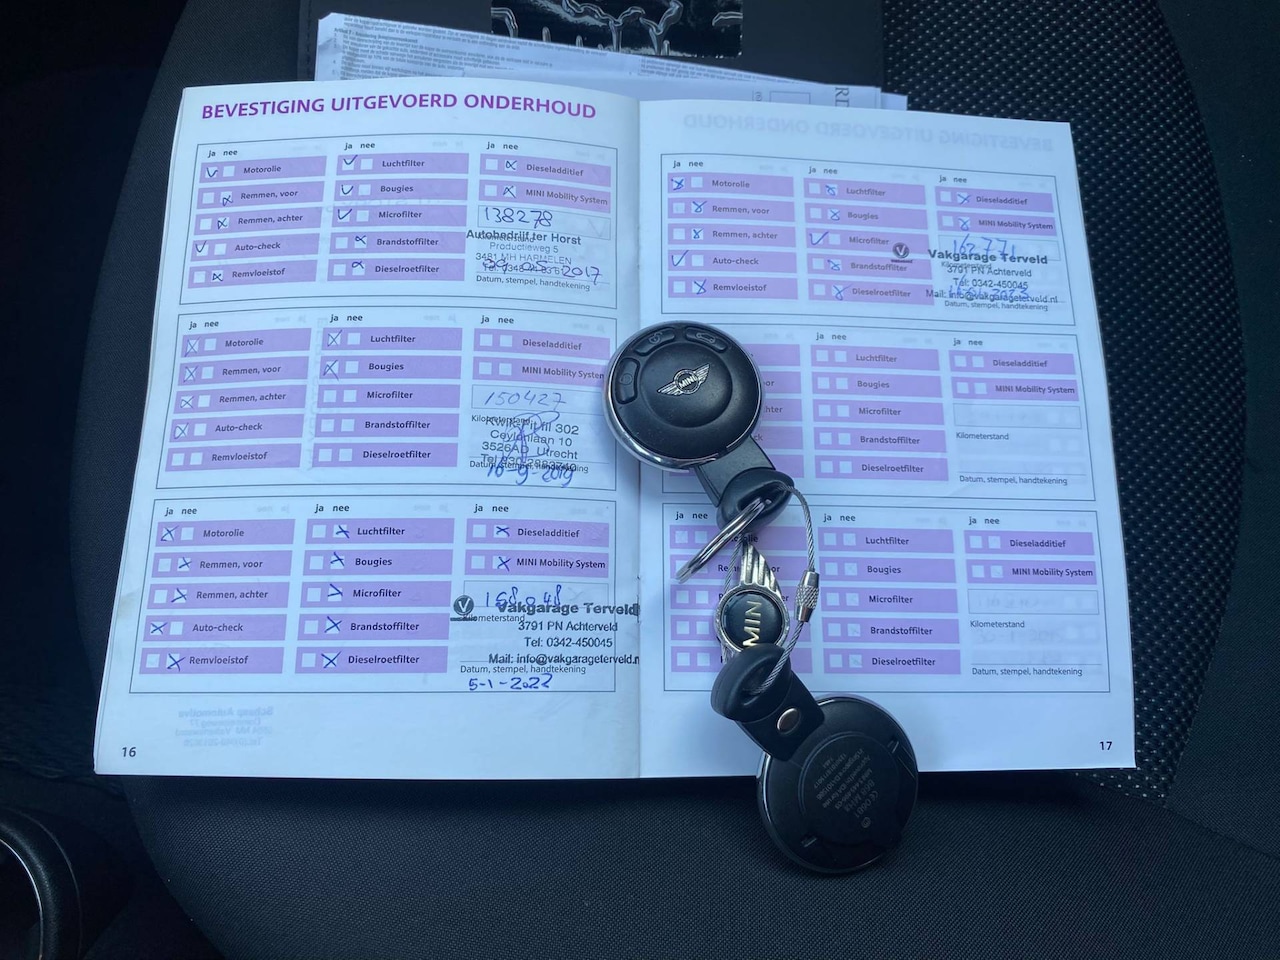 BEVESTIGING UITGEVOERD ONDERHOUD
ja nee
Motorolie
Remmen, voor
Remmen, achter
Auto-check
Remvloeistof
ja nee
Luchtfilter
Bougies
Microfilter
Brandstoffilter
Dieselroetfilter
ja nee
Dieseladditief
MINI Mobility System
138278
Autobedrijf ter Horst
Productieweg 5
3481 MH HARMELEN
Datum, stempel, handtekening
ja nee
Motorolie
Remmen, voor
Remmen, achter
Auto-check
Remvloeistof
ja nee
Luchtfilter
Bougies
Microfilter
Brandstoffilter
Dieselroetfilter
ja nee
Dieseladditief
MINI Mobility System
150427
Kilometerstand
Kwik-Fit fil 302
Ceylonlaan 10
3526AD Utrecht
Datum, stempel, handtekening
10-9-2019
ja nee
Motorolie
Remmen, voor
Remmen, achter
Auto-check
Remvloeistof
ja nee
Luchtfilter
Bougies
Microfilter
Brandstoffilter
Dieselroetfilter
ja nee
Dieseladditief
MINI Mobility System
158.048
Vakgarage Terveld
Kilometerstand
3791 PN Achterveld
Tel: 0342-450045
Mail: info@vakgarageterveld.n
Datum, stempel, handtekening
5-1-2022
16
ja nee
Motorolie
Remmen, voor
Remmen, achter
Auto-check
Remvloeistof
ja nee
Luchtfilter
Bougies
Microfilter
Brandstoffilter
Dieselroetfilter
ja nee
Dieseladditief
MINI Mobility System
162.771
Vakgarage Terveld
3791 PN Achterveld
Tel: 0342-450045
Mail: info@vakgarageterveld.nl
Datum, stempel, handtekening
ja nee
Luchtfilter
Bougies
Microfilter
Brandstoffilter
Dieselroetfilter
ja nee
Dieseladditief
MINI Mobility System
Kilometerstand
Datum, stempel, handtekening
ja nee
ja nee
Luchtfilter
Bougies
Microfilter
Brandstoffilter
Dieselroetfilter
ja nee
Dieseladditief
MINI Mobility System
Kilometerstand
Datum, stempel, handtekening
17
MINI
MINI